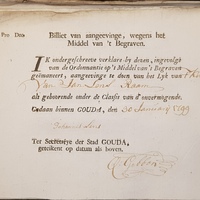 Pro Deo
Billiet van aangeevinge, wegens het
Middel van 't Begraven.
IK ondergeschreve verklare by deeen, ingevolgt
van de Ordonnantie op 't Middel van 't Begraven
geëmaneert, aangeevinge te doen van het Lyk van
van Jan
als gehoorende onder de Classis van d'onvermogende.
Gedaan binnen GOUDA, den 30 January 1799
Ter Secretarye der Stad GOUDA,
geteikent op datum als boven.